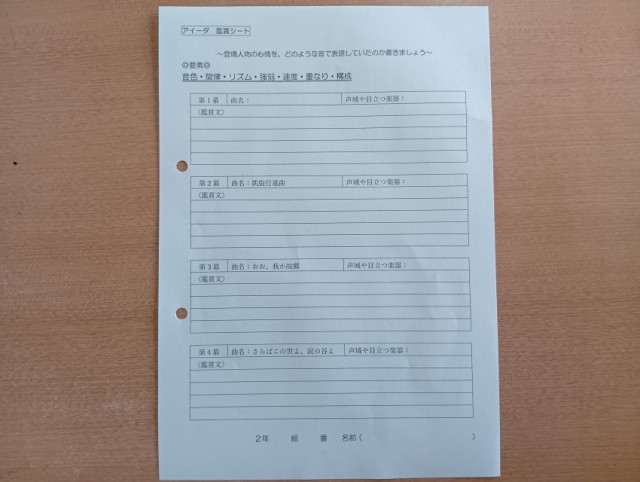 アイーダ 鑑賞シート
～登場人物の心情を、どのような音で表現していたのか書きましょう～
◎要素◎
音色・旋律・リズム・強弱・速度・重なり・構成
第1幕 曲名： 声域や目立つ楽器：
（鑑賞文）
第2幕 曲名：凱旋行進曲 声域や目立つ楽器：
（鑑賞文）
第3幕 曲名：おお、我が故郷 声域や目立つ楽器：
（鑑賞文）
第4幕 曲名：さらばこの世よ、涙の谷よ 声域や目立つ楽器：
（鑑賞文）
2年 組 番 名前（ ）